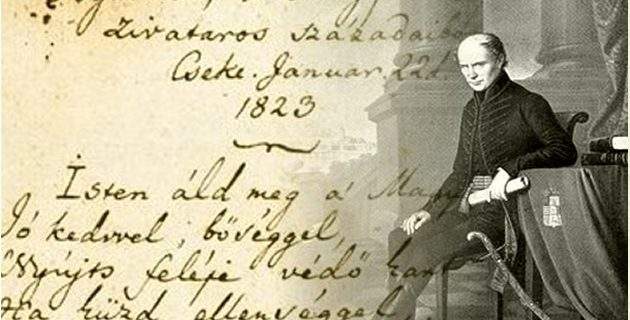 Zivataros századaibó
Cseke. Januar. 22d.
1823
Isten áld meg a' Magy
Jó kedvvel, bőséggel,
Nyújts feléje védő kart
Ha küzd ellenséggel,